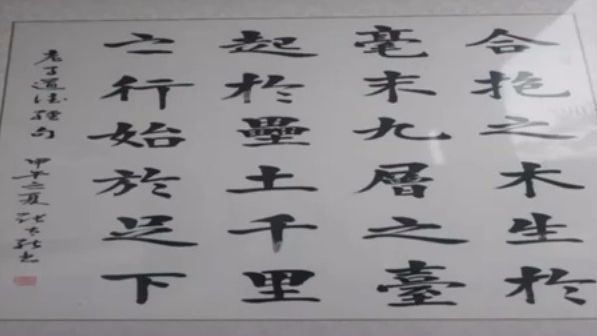 合抱之木生於
毫末九層之臺
起於壘土千里
之行始於足下
老子道德經句
甲午之夏張